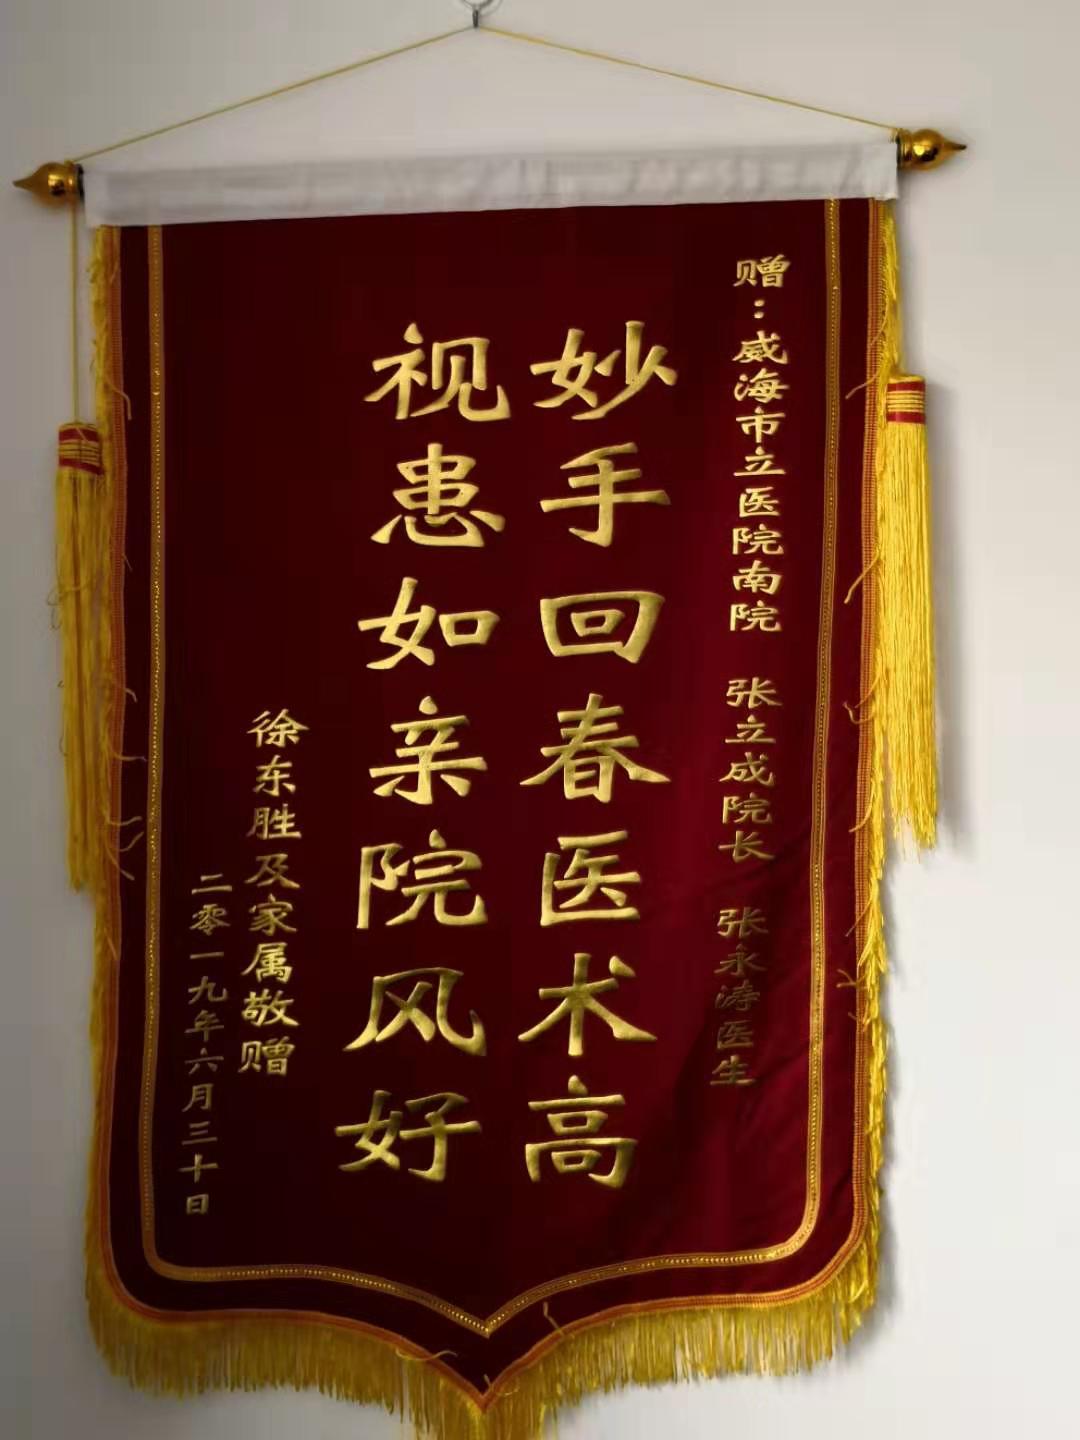 赠：威海市立医院南院 张立成院长 张永涛医生
妙手回春医术高
视患如亲院风好
徐东胜及家属敬赠
二零一九年六月三十日